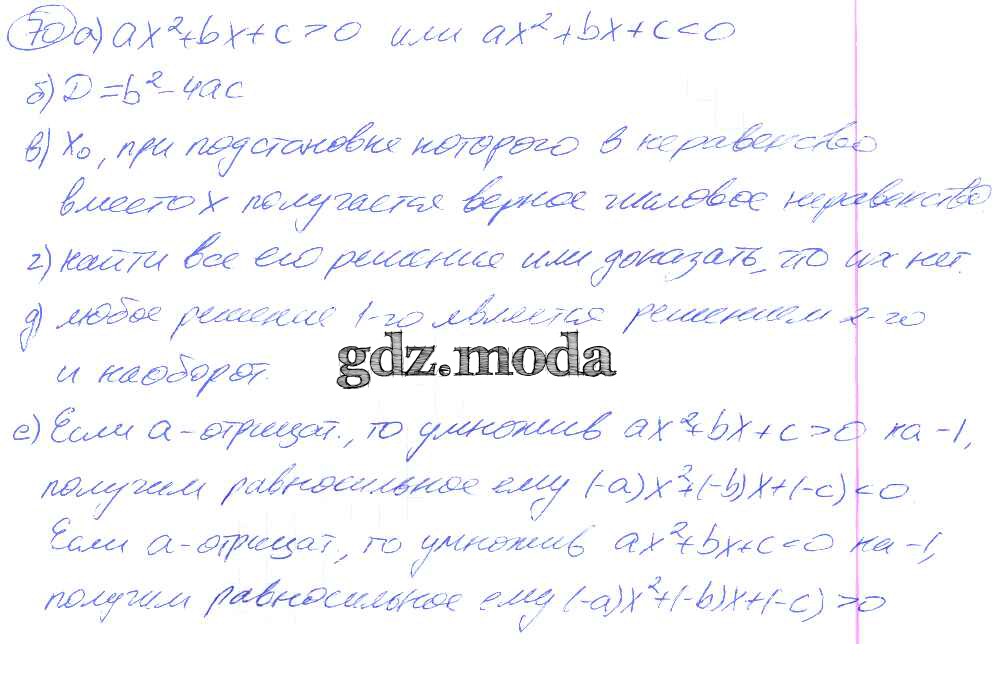 70 а) ax²+bx+c>0 или ax²+bx+c<0
б) D=b²-4ac
в) x₀, при подстановке которого в неравенство
вместо x получается верное числовое неравенство.
г) найти все его решение или доказать, что их нет.
д) любое решение 1-го является решением 2-го
и наоборот.
gdz.moda
е) Если a-отрицат., то умножив ax²+bx+c>0 на -1,
получим равносильное ему (-a)x²+(-b)x+(-c)<0
Если a-отрицат., то умножив ax²+bx+c<0 на -1,
получим равносильное ему (-a)x²+(-b)x+(-c)>0